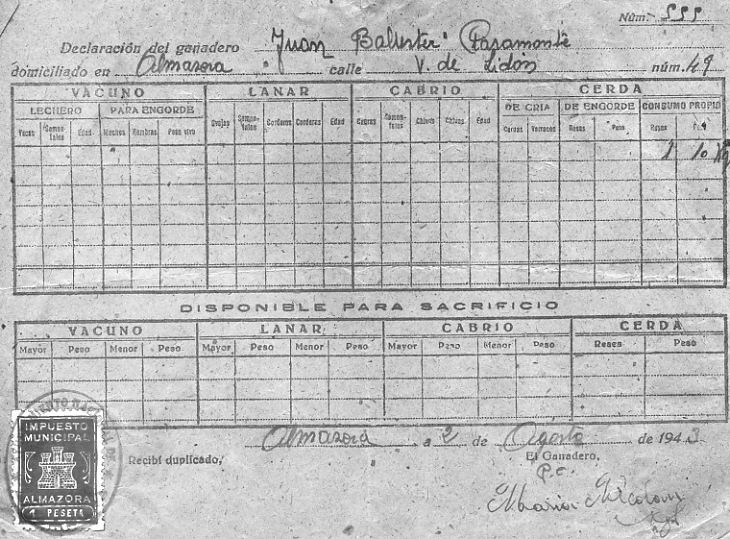 Núm. 555
Declaración del ganadero Juan Ballester Paramonte
domiciliado en Almazora calle V. de Lidón núm. 49
VACUNO LANAR CABRIO CERDA
LECHERO PARA ENGORDE DE CRIA DE ENGORDE CONSUMO PROPIO
Vacas Semen-tales Edad Machos Hembras Peso vivo Ovejas Semen-tales Corderos Corderas Edad Cabras Semen-tales Chivos Chivas Edad Cerdas Verracos Reses Peso Reses Peso
1 10 Kg
DISPONIBLE PARA SACRIFICIO
VACUNO LANAR CABRIO CERDA
Mayor Peso Menor Peso Mayor Peso Menor Peso Mayor Peso Menor Peso Reses Peso
Almazora a 2 de Agosto de 1943
Recibí duplicado, El Ganadero,
P.O.
Maria
IMPUESTO
MUNICIPAL
ALMAZORA
1 PESETA